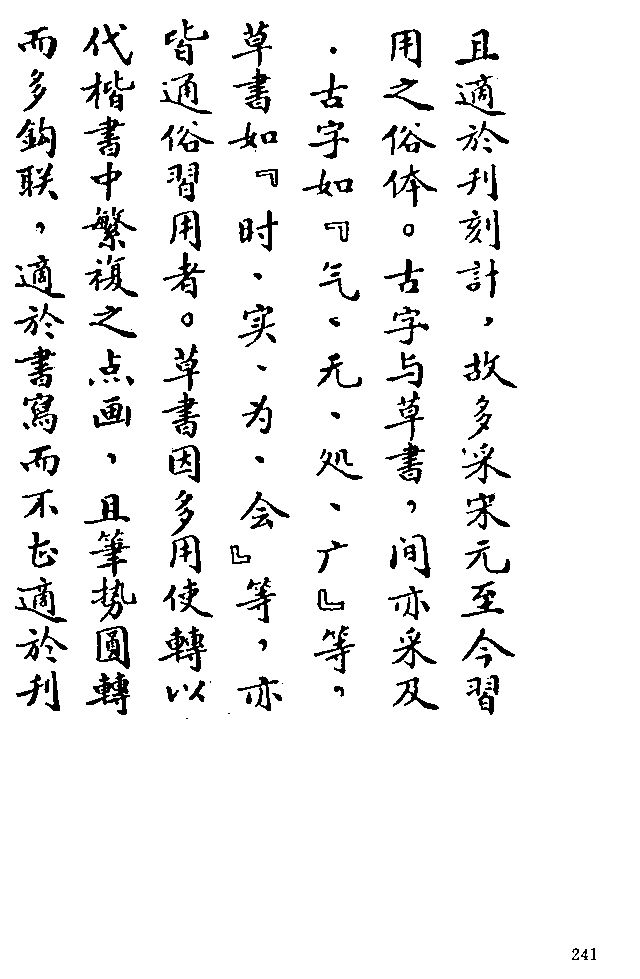 且適於刋刻計，故多采宋元至今習
用之俗体。古字与草書，间亦采及
．古字如『气、无、处、广』等，
草書如『时、实、为、会』等，亦
皆通俗習用者。草書因多用使轉以
代楷書中繁複之点画，且筆势圓轉
而多鈎联，適於書寫而不甚適於刋
241